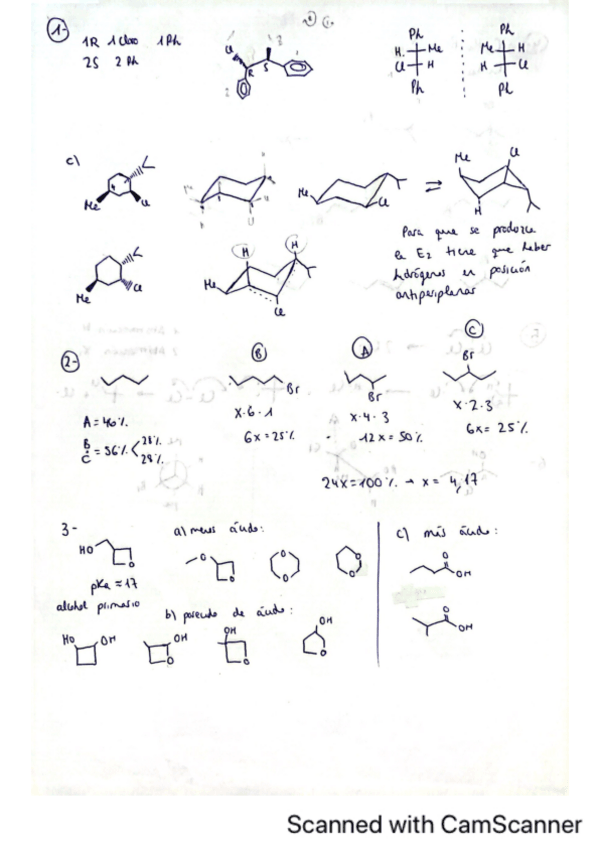 1-
1R 1 Cloro 1Ph
2S 2 Ph
Cl
R S
Ph Ph
H. Me Me H
Cl H H Cl
Ph Ph
c)
Me Cl
Me Cl
Me Cl
H
Para que se produzca
la E2 tiene que haber
hidrógenos en posición
antiperiplanar
Me Cl
H H
Me
Cl
2-
B A C
Br Br Br
A = 40%.
B
C = 56%. < 28%.
28%.
x·6·1 x·4·3 x·2·3
6x = 25%. 12x = 50%. 6x = 25%.
24x = 100%. → x = 4,17
3-
HO O
pKa = 17
alcohol primario
a) menos ácido:
O O O O O O
b) parecido de ácido:
HO OH OH O OH O OH O
c) más ácido:
O OH
O OH
Scanned with CamScanner